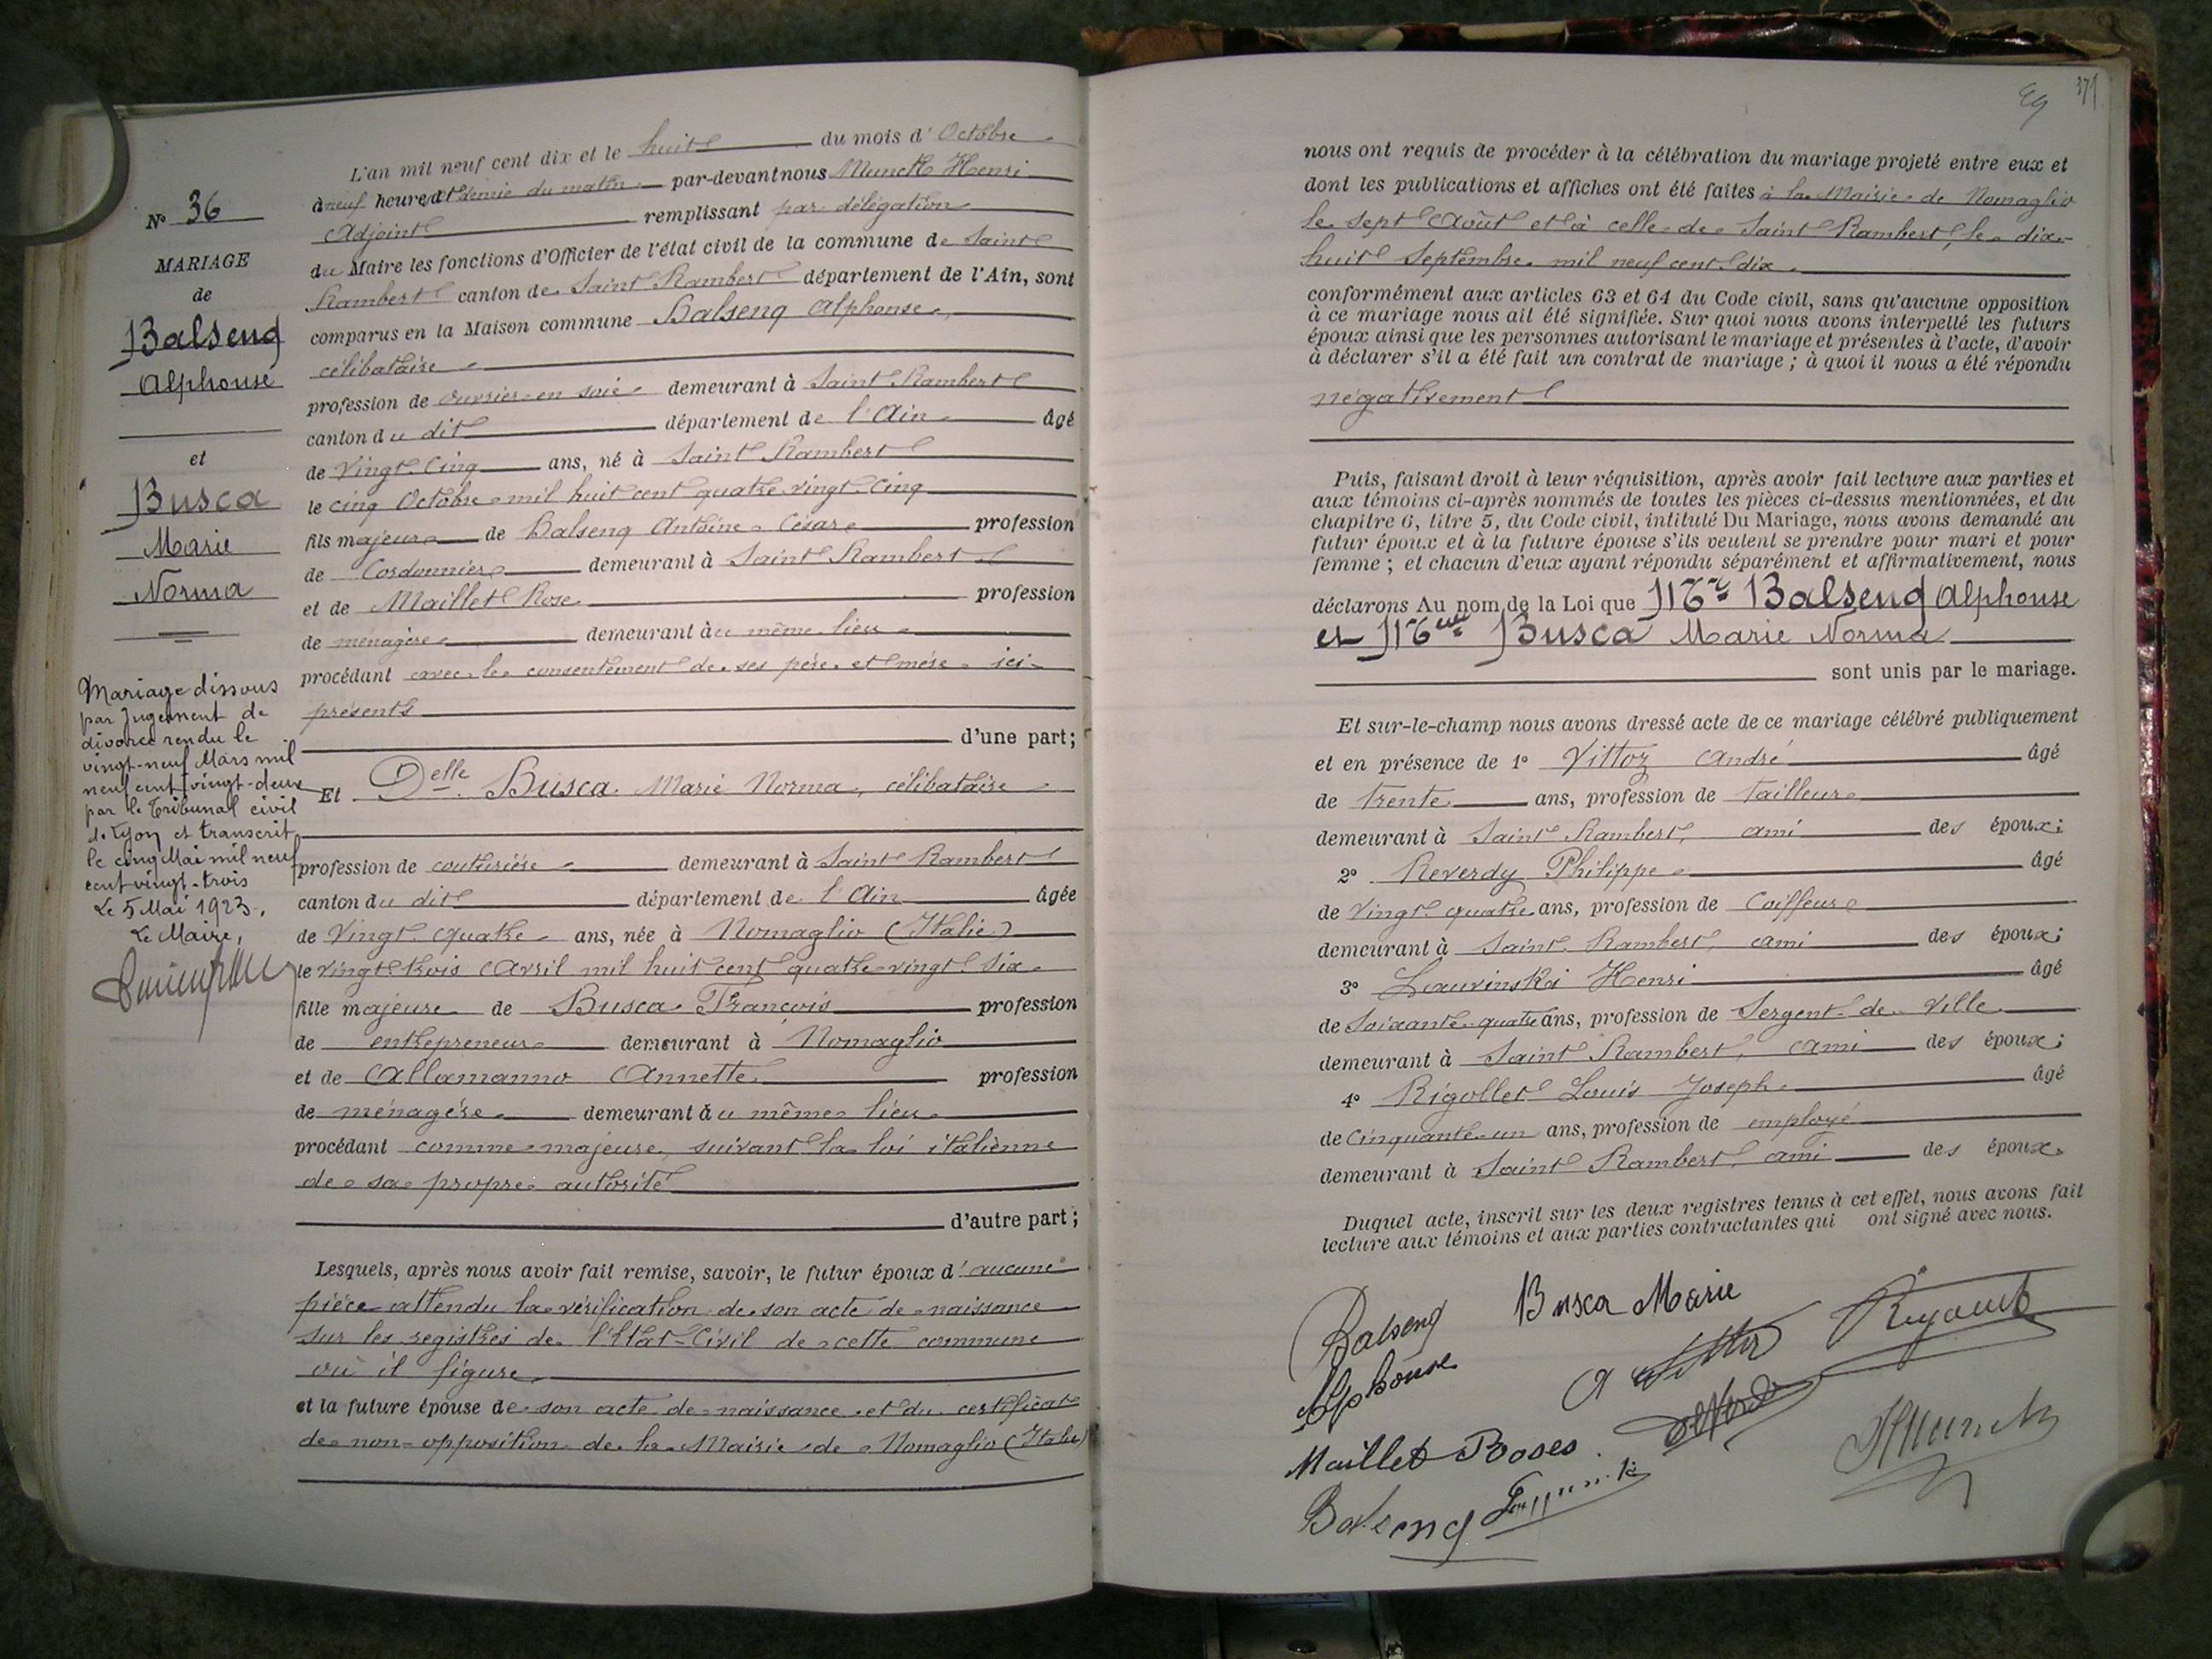 N° 36
MARIAGE
de
Balseng
Alphonse
et
Busca
Marie
Norma
Mariage dissous
par Jugement de
divorce rendu le
vingt-neuf Mars mil
neuf cent vingt-deux
par le Tribunal civil
de Lyon et transcrit
le cinq Mai mil neuf
cent vingt-trois
Le 5 Mai 1923.
Le Maire,
L'an mil neuf cent dix et le huit du mois d'Octobre
à neuf heures et demie du matin par-devant nous Munck Henri
Adjoint remplissant par délégation
du Maire les fonctions d'Officier de l'état civil de la commune de Saint
Rambert canton de Saint Rambert département de l'Ain, sont
comparus en la Maison commune Balseng Alphonse,
célibataire
profession de ouvrier en soie demeurant à Saint Rambert
canton du dit département de l'Ain âgé
de vingt cinq ans, né à Saint Rambert
le cinq Octobre mil huit cent quatre vingt cinq
fils majeur de Balseng Antoine César profession
de Cordonnier demeurant à Saint Rambert
et de Maillet Rose profession
de ménagère demeurant au même lieu
procédant avec le consentement de ses père et mère ici
présents
d'une part;
Et Delle Busca Marie Norma, célibataire
profession de couturière demeurant à Saint Rambert
canton du dit département de l'Ain âgée
de vingt quatre ans, née à Nomaglio (Italie)
le vingt trois Avril mil huit cent quatre-vingt six
fille majeure de Busca François profession
de entrepreneur demeurant à Nomaglio
et de Allamanno Annette profession
de ménagère demeurant au même lieu
procédant comme majeure, suivant la loi italienne
de sa propre autorité
d'autre part;
Lesquels, après nous avoir fait remise, savoir, le futur époux d'aucune
pièce attendu la vérification de son acte de naissance
sur les registres de l'Etat-Civil de cette commune
où il figure
et la future épouse de son acte de naissance et du certificat
de non-opposition de la Mairie de Nomaglio (Italie)
49 371
nous ont requis de procéder à la célébration du mariage projeté entre eux et
dont les publications et affiches ont été faites à la Mairie de Nomaglio
le sept Août et à celle de Saint Rambert, le dix-
huit Septembre mil neuf cent dix
conformément aux articles 63 et 64 du Code civil, sans qu'aucune opposition
à ce mariage nous ait été signifiée. Sur quoi nous avons interpellé les futurs
époux ainsi que les personnes autorisant le mariage et présentes à l'acte, d'avoir
à déclarer s'il a été fait un contrat de mariage; à quoi il nous a été répondu
négativement
Puis, faisant droit à leur réquisition, après avoir fait lecture aux parties et
aux témoins ci-après nommés de toutes les pièces ci-dessus mentionnées, et du
chapitre 6, titre 5, du Code civil, intitulé Du Mariage, nous avons demandé au
futur époux et à la future épouse s'ils veulent se prendre pour mari et pour
femme; et chacun d'eux ayant répondu séparément et affirmativement, nous
déclarons Au nom de la Loi que Mr Balseng Alphonse
et Melle Busca Marie Norma
sont unis par le mariage.
Et sur-le-champ nous avons dressé acte de ce mariage célébré publiquement
et en présence de 1° Vittoz André âgé
de trente ans, profession de tailleur
demeurant à Saint Rambert, ami des époux;
2° Reverdy Philippe âgé
de vingt quatre ans, profession de Coiffeur
demeurant à Saint Rambert, ami des époux;
3° Lauvinski Henri âgé
de soixante-quatre ans, profession de Sergent de Ville
demeurant à Saint Rambert, ami des époux;
4° Rigollet Louis Joseph âgé
de cinquante-un ans, profession de employé
demeurant à Saint Rambert, ami des époux.
Duquel acte, inscrit sur les deux registres tenus à cet effet, nous avons fait
lecture aux témoins et aux parties contractantes qui ont signé avec nous.
Balseng Busca Marie
Alphonse
Maillet Roses
Balseng
HMunck